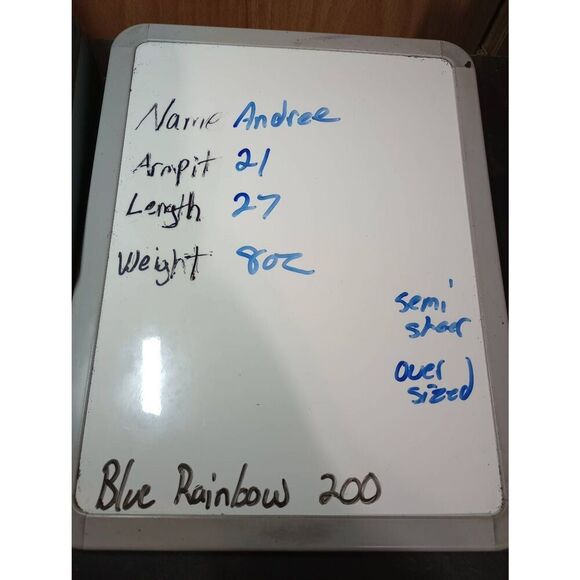 Name Andree
Armpit 21
Length 27
Weight 8oz
semi
sheer
over
sized
Blue Rainbow 200